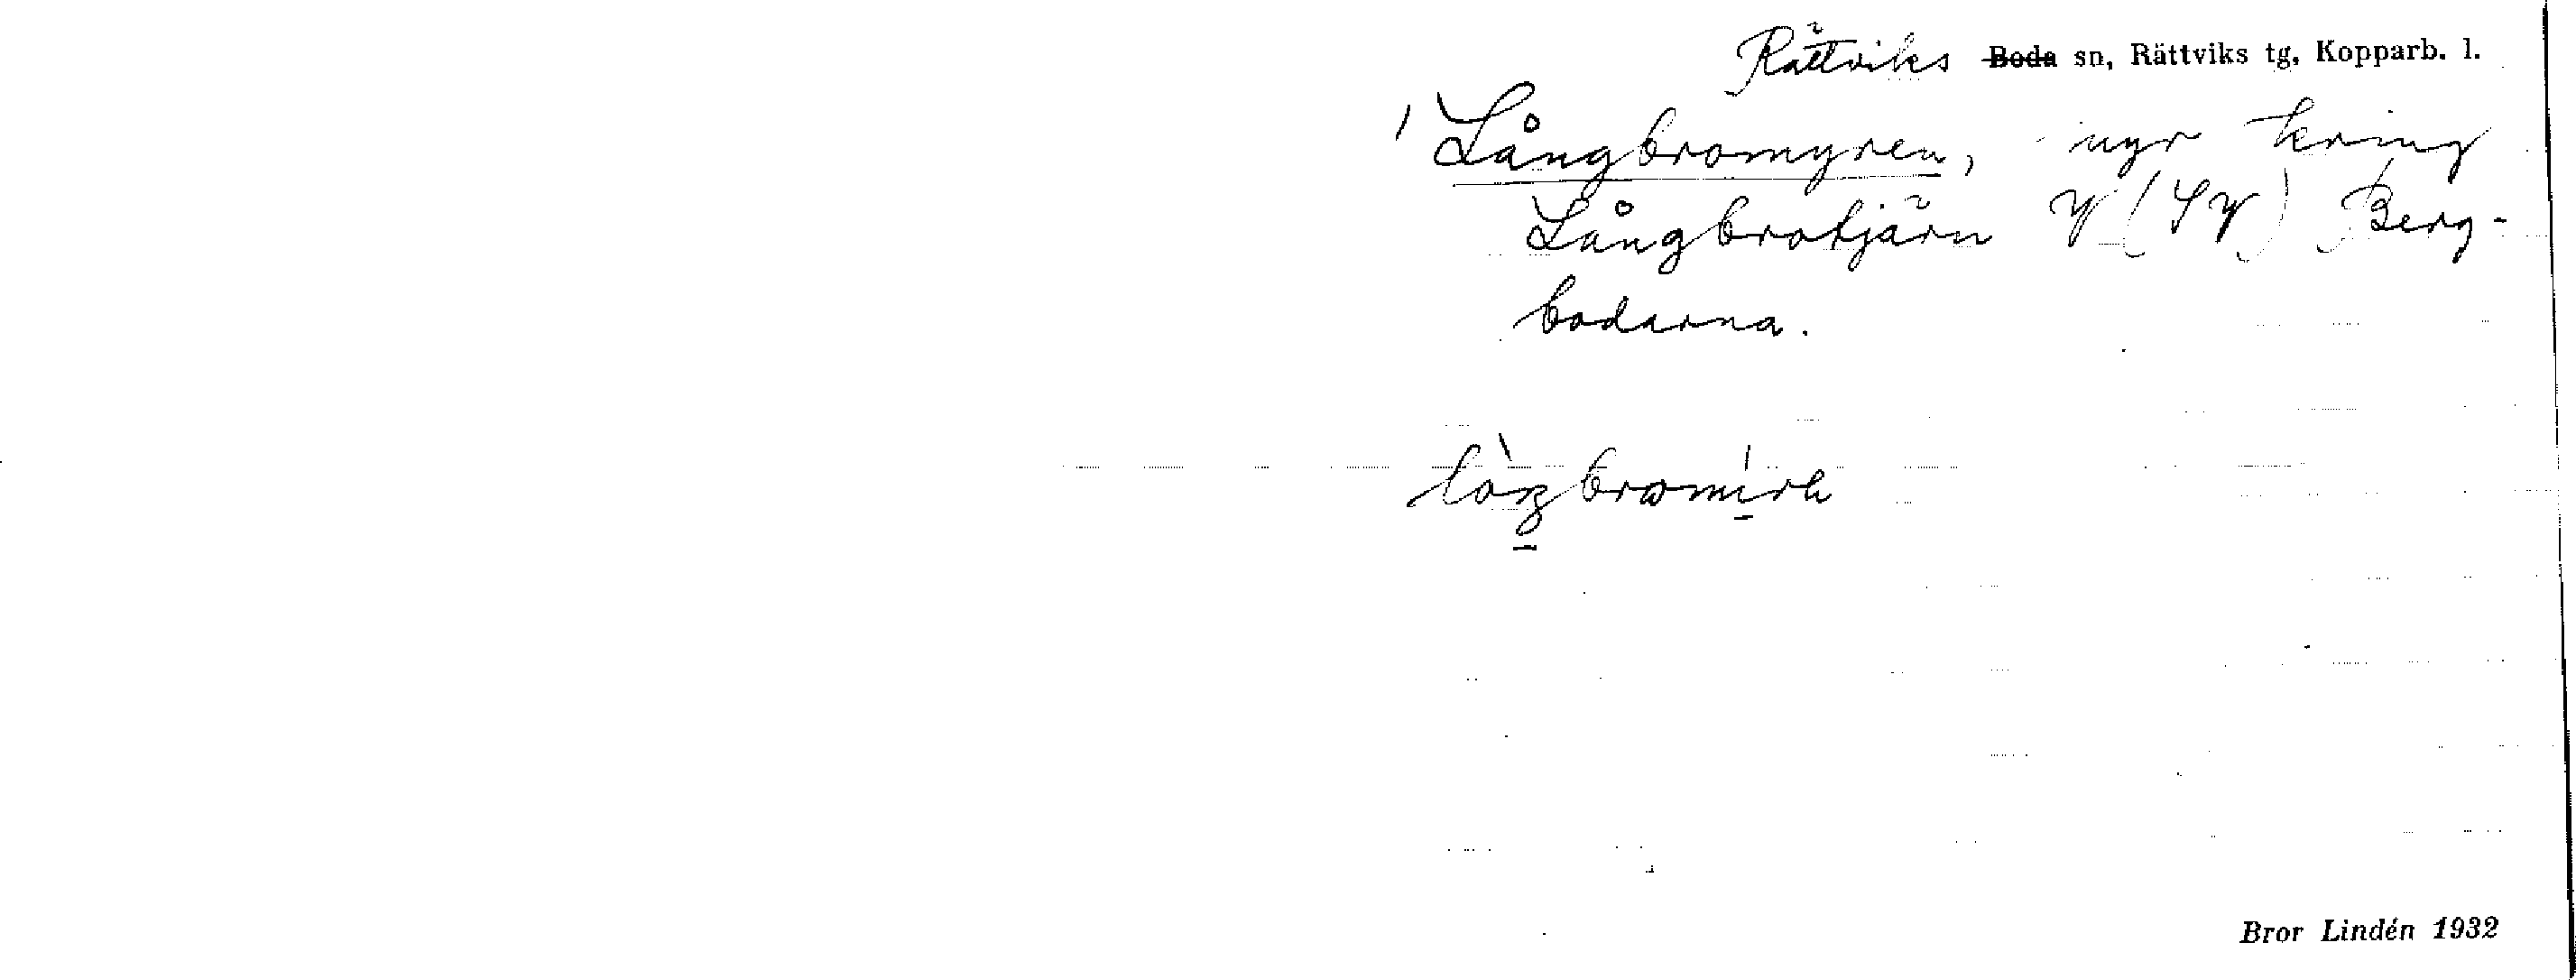 Rättviks Boda sn, Rättviks tg, Kopparb. l.
Långbromyren, myr kring
Långbrotjärn V (SV) Berg-
bodarna.
Bror Lindén 1932